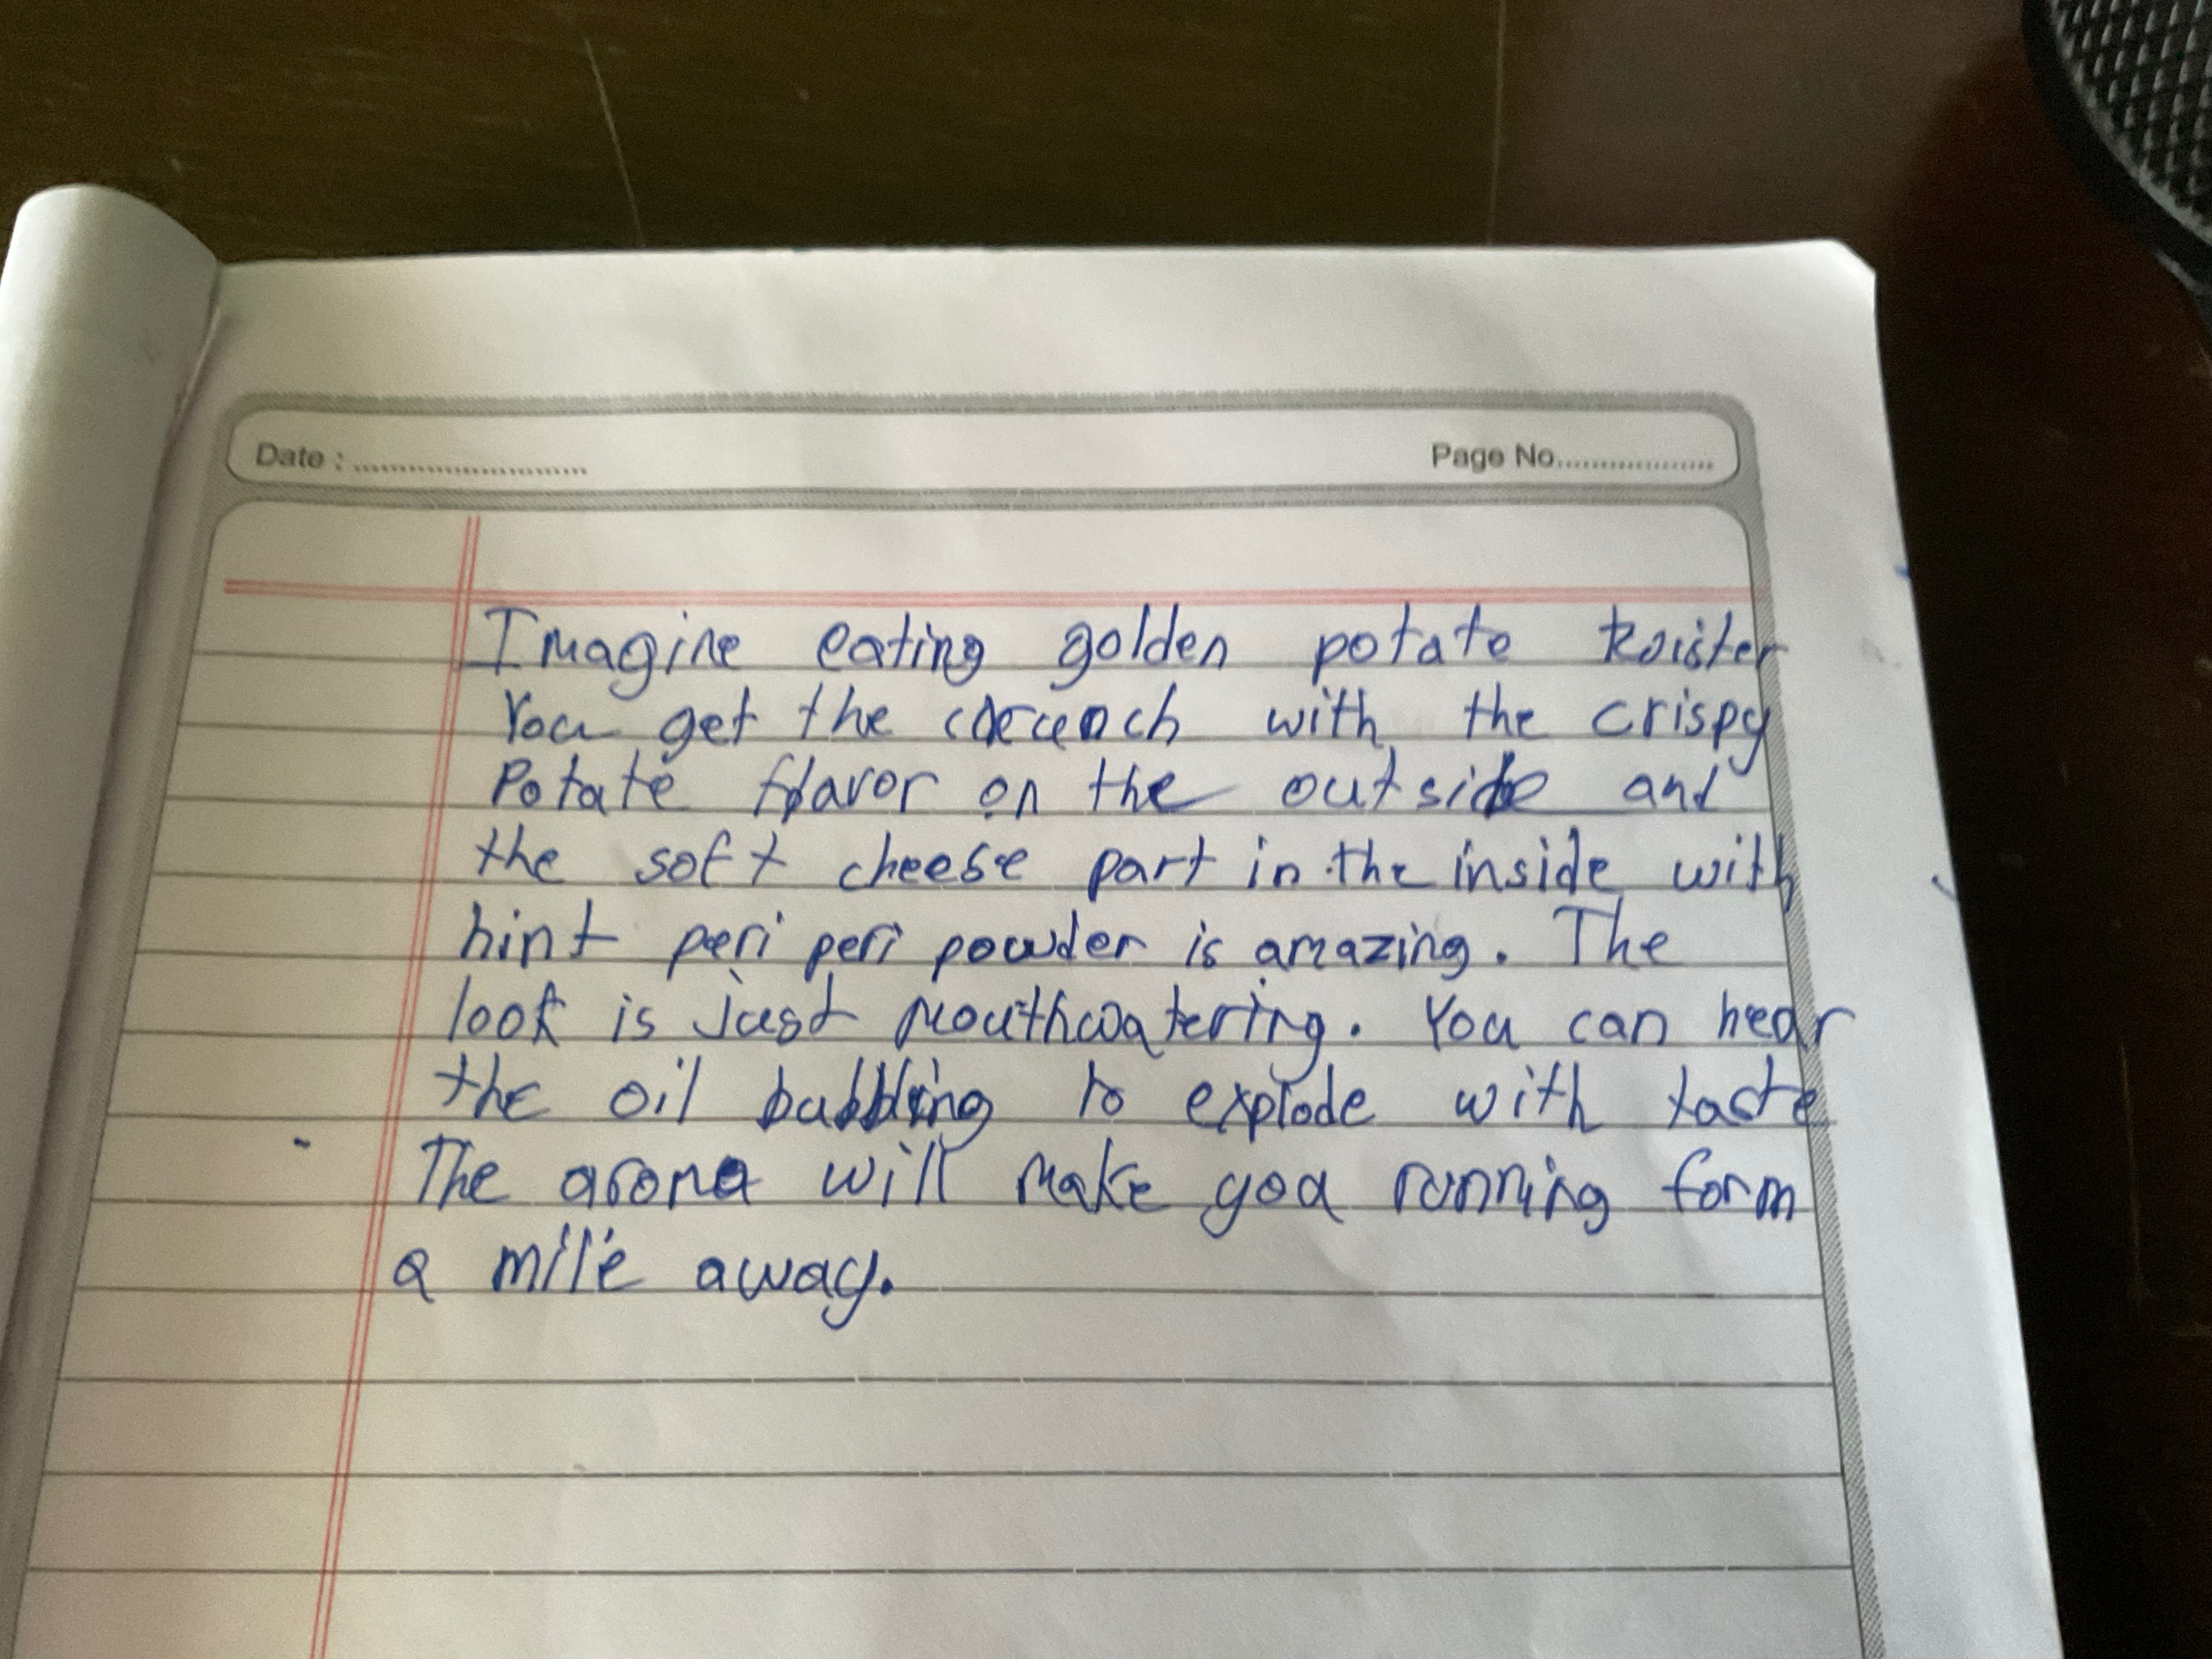 Date : ........................... Page No..................
Imagine eating golden potate twister
You get the crunch with the crispy
Potate flavor on the outside and
the soft cheese part in the inside with
hint peri peri powder is amazing. The
look is just mouthwatering. You can hear
the oil bubbling to explode with taste
The aroma will make you running form
a mile away.